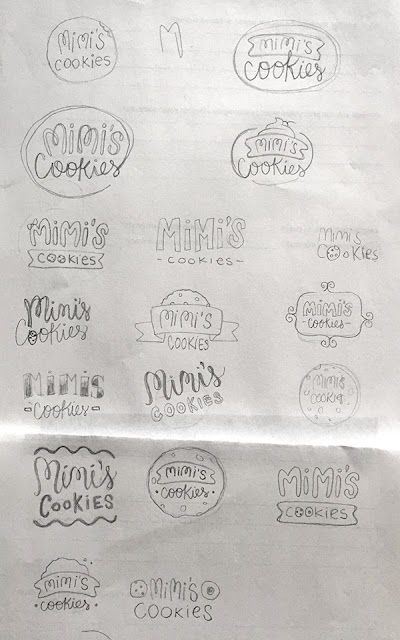 Mimi's
cookies
M
Mimi's
cookies
Mimi's
Cookies
Mimi's
Cookies
MiMi's
COOKIES
MiMi's
- COOKIES -
MiMi's
COOKIES
Mimi's
Cookies
MiMi'S
COOKIES
MiMi'S
- Cookies -
MiMiS
- Cookies -
Mimi's
COOKIES
Mimi's
COOKIES
Mimi's
COOKIES
MiMi'S
· cookies ·
MiMi'S
COOKIES
MiMi'S
· cookies ·
MiMi'S
COOKIES